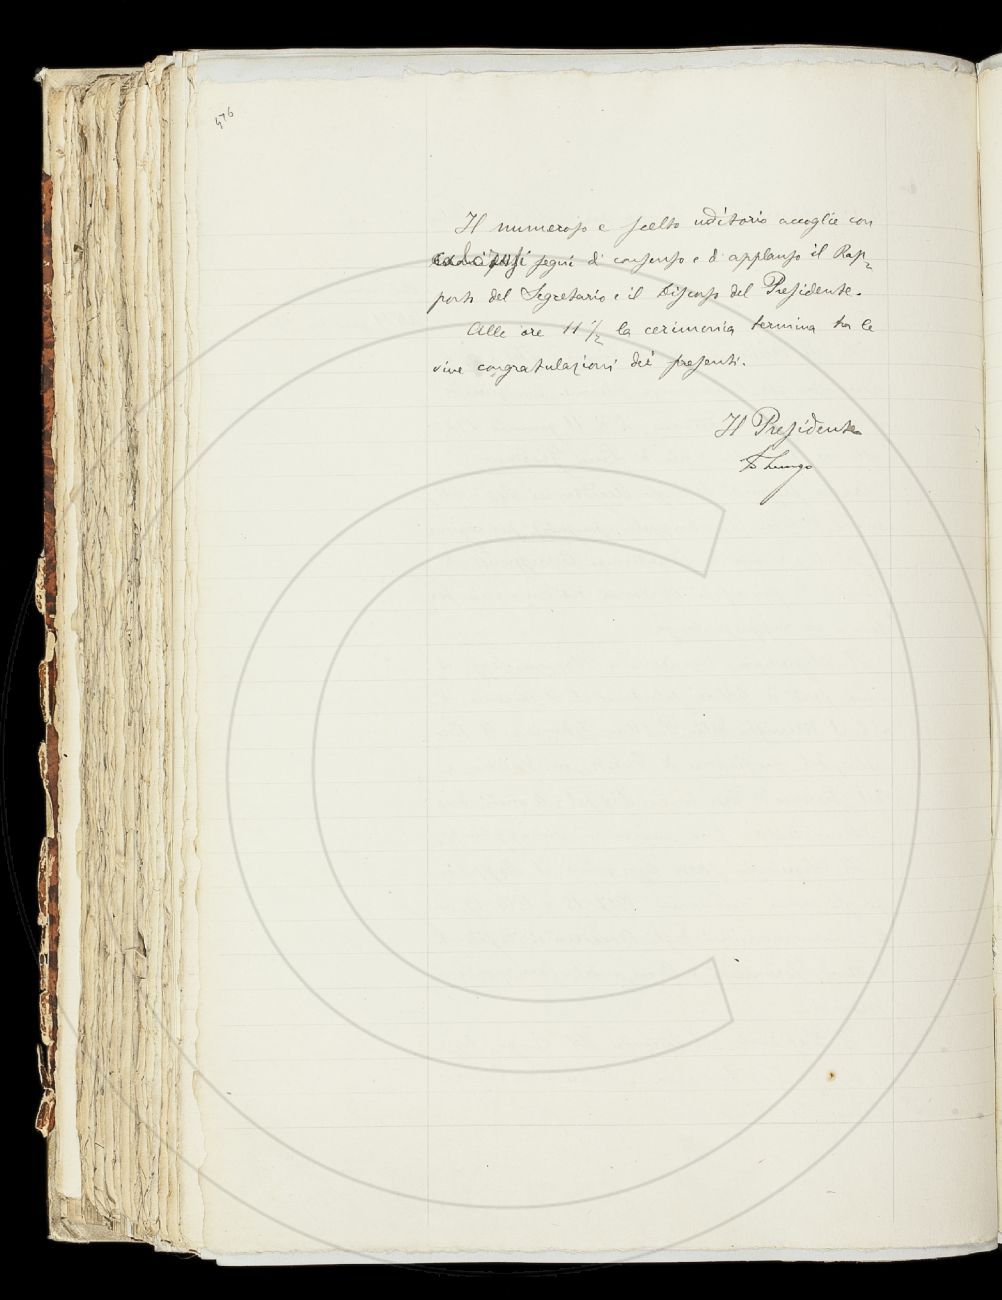 476
Il numeroso e scelto uditorio accoglie con
calorosi segni di consenso e d'applauso il Rap=
porto del Segretario e il Discorso del Presidente.
Alle ore 11 1/2 la cerimonia termina tra le
vive congratulazioni dei presenti.
Il Presidente
Lungo